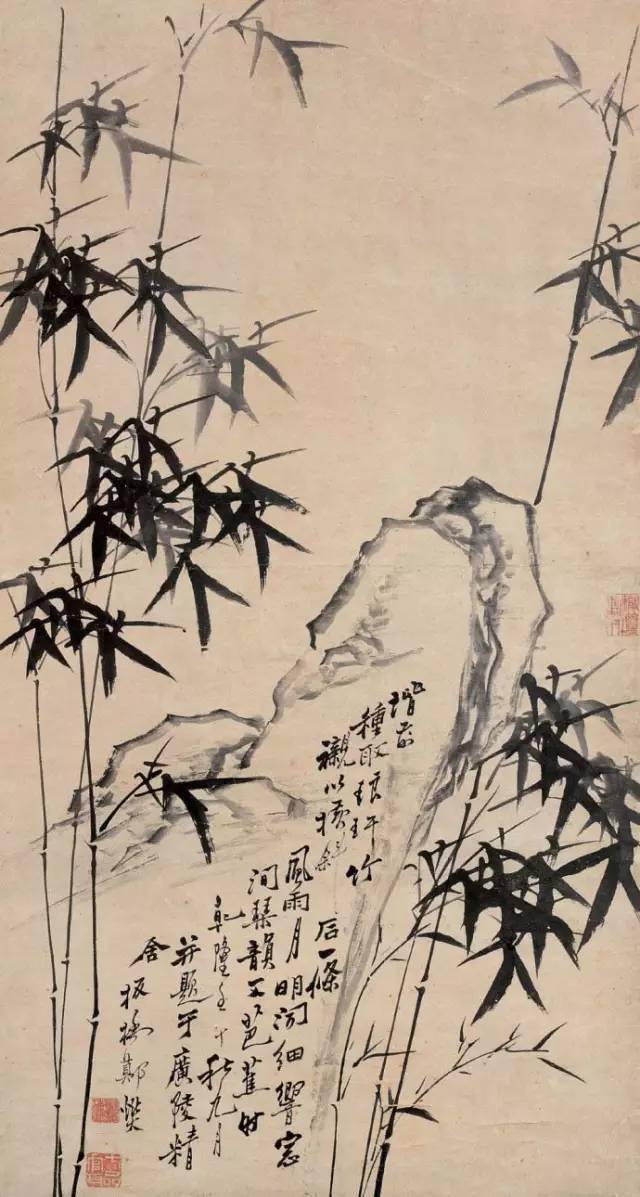 階前
種取琅玕竹
襯以橫斜
石一條
風雨月明聞細響窓
間琴韻芭蕉時
乾隆壬午秋九月
并題于廣陵精
舍 板橋鄭燮